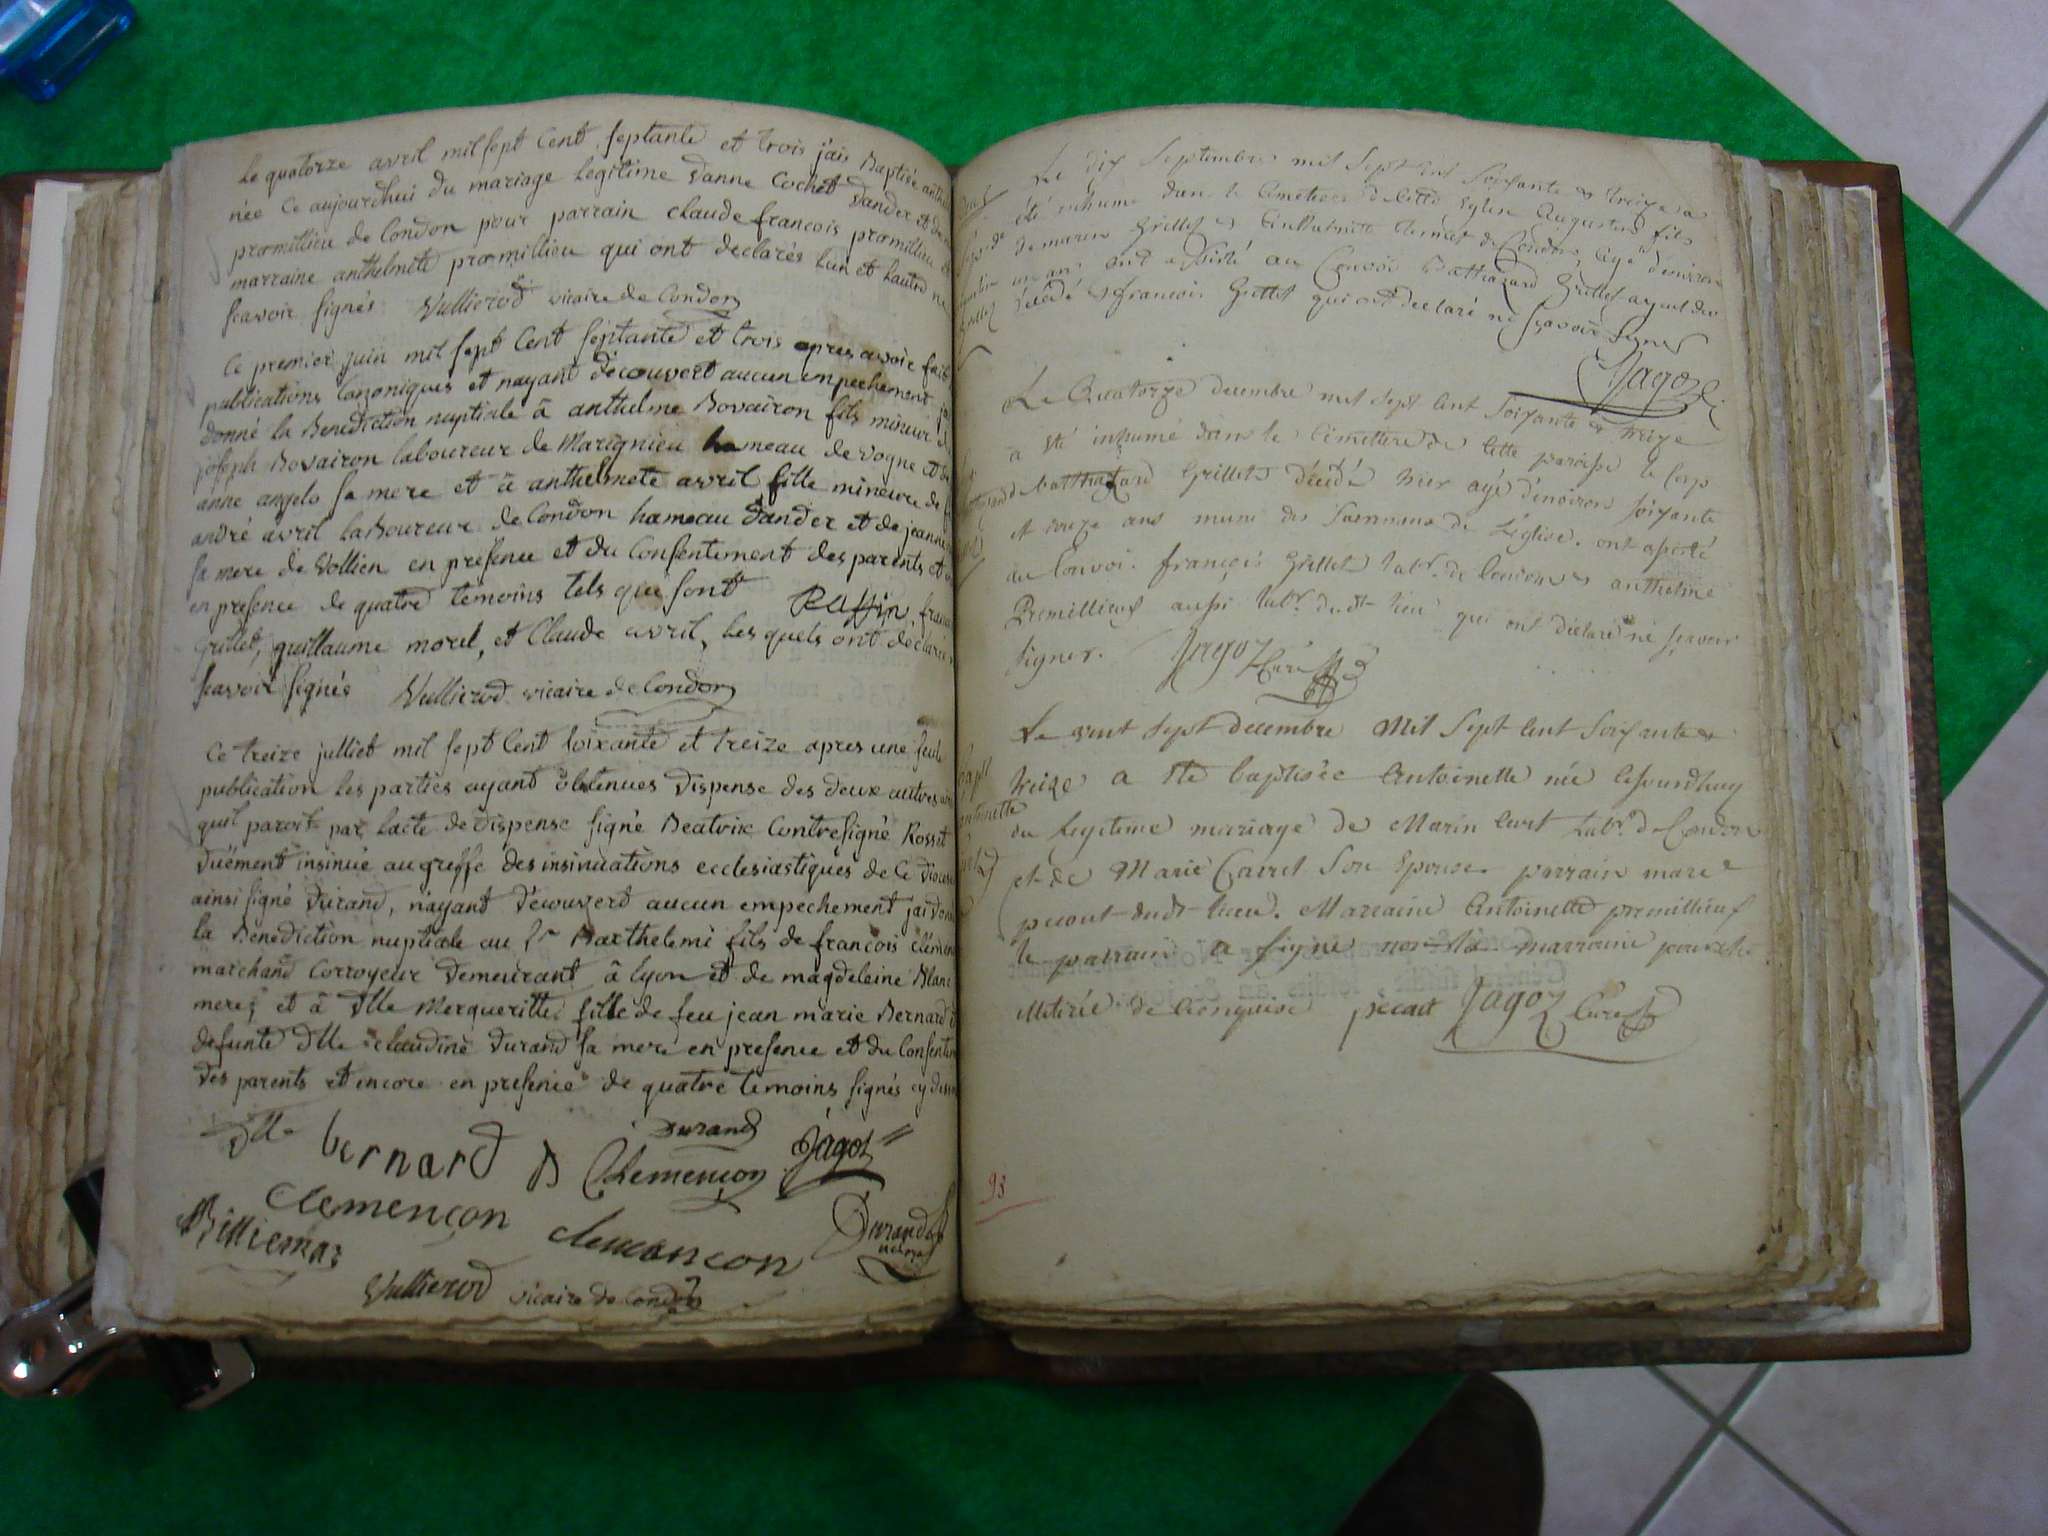 Le quatorze avril mil sept Cent septante et trois j'ais Baptisée
née Ce aujourdhui du mariage Legitime d'anne Cochet Dander et de
promillieu de Condon pour parrain claude francois promillieu
marraine anthelmete promillieu qui ont declarés lun et lautre ne
scavoir signés Vullierod vicaire de Condon
Ce premier juin mil sept Cent septante et trois apres avoir fait
publications Canoniques et nayant découvert aucun empechement
donné la Benediction nuptiale â anthelme Bovairon fils mineur
joseph Bovairon laboureur de Marignieu hameau de vogne et de
anne angelo sa mere et â anthelmete avril fille mineure de
andré avril laboureur de Condon hameau Dander et de jeanne
sa mere de Vollien en presence et du Consentement des parents et
en presence de quatre temoins tels que sont Passin
Grillet, guillaume morel, et Claude avril, lesquels ont declarés
scavoir signés Vullierod vicaire de Condon
Ce treize julliet mil sept Cent soixante et treize apres une seule
publication les parties ayand obtenues dispense des deux autres
quil paroit par lacte de dispense signé Beatrix Contresigné Rosset
Duëment insinué au greffe des insinuations ecclesiastiques de Ce Diocese
ainsi signé Durand, nayant découverd aucun empechement jai donné
la Benediction nuptiale au Sr Barthelemi fils de francois
marchand Corroyeur Demeurant â lyon et de magdeleine Blanc
mere, et â Dlle Marqueritte fille de feu jean marie Bernard
defunte Dlle claudine Durand sa mere en presence et du Consentem
des parents et encore en presence de quatre temoins signés cy dessou
Dlle bernard B Clemencon Durand Jagot
Clemençon clemancon Durand
Billiemaz
Vullierod vicaire de Condon
Le dix Septembre mil Sept Cent Soixante et treize a
été inhumé dans le Cimetiere de cette Eglise Augustin fils
de marin Grillet et Anthelmette de Condon, agé d'environ
un an ont assisté au Convoi Balthazard Grillet ayeul du
décédé et françois Grillet qui ont declaré ne sçavoir signer
Jagoz
Le Quatorze decembre mil sept Cent Soixante et treize
a été inhumé dans le Cimettere de cette paroisse le Corp
de balthazard Grillet décédé hier agé d'environ soixante
et douze ans muni des Sacremens de l'église. ont assisté
au Convoi. françois Grillet labr. de Condon et anthelme
Premillieux aussi labr. du dt lieu qui ont déclaré ne sçavoir
signer. Jagoz Curé
Le vint Sept decembre Mil Sept Cent Soixante et
treize a été baptisée Antoinette née cejourdhuy
du legitime mariage de Marin labr. de Condon
et de Marie Carret Son Epouse. parrain marc
pecout dudt lieu. Marraine Antoinette premillieux
le parrain a signé non la marraine pour etre
illeterée de ce enquise pécout Jagoz Curé
antoinette
93